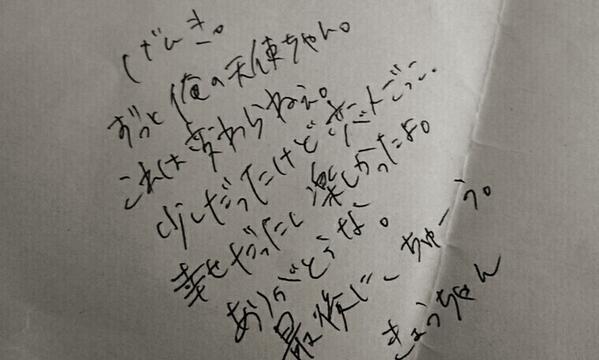 げんき。
ずっと俺の天使ちゃん。
これは変わらねえ。
少しだったけど
幸せだったし楽しかったよ。
ありがとうな。
最後にーちゅーう。
きょうちゃん